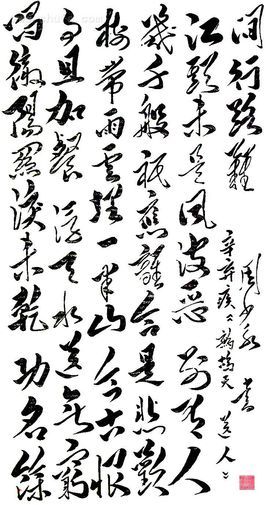 唱徹陽關淚未乾功名餘
事且加餐浮天水送無窮
樹帶雨雲埋一半山今古恨
幾千般祇應離合是悲歡
江頭未是風波惡別有人
間行路難
辛棄疾詞鷓鴣天送人
書